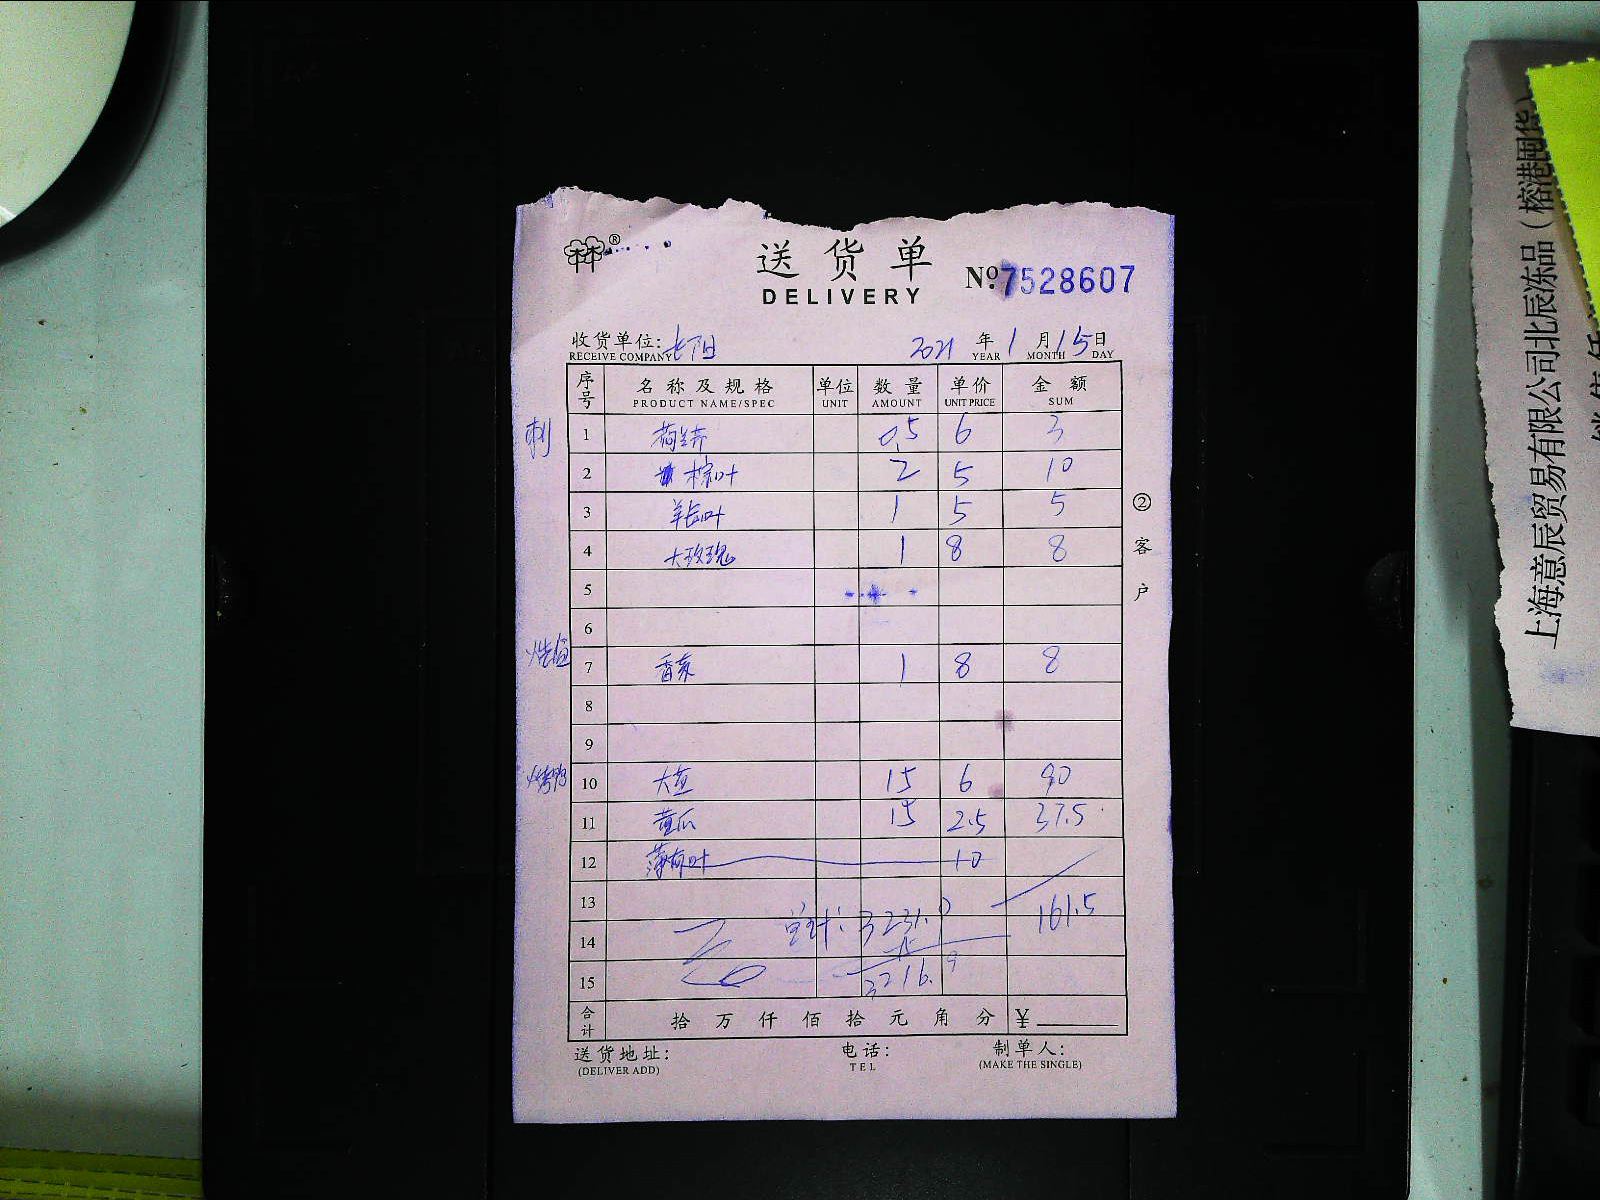 林®
送货单
DELIVERY
№7528607
收货单位:
RECEIVE COMPANY
2021 年 1 月 15 日
YEAR MONTH DAY
序号 名称及规格 单位 数量 单价 金额
PRODUCT NAME/SPEC UNIT AMOUNT UNIT PRICE SUM
刺 1 荷兰芹 0.5 6 3
2 棕叶 2 5 10
3 叶 1 5 5
4 大玫瑰 1 8 8
5
6
7 香菜 1 8 8
8
9
烤鸭 10 大 15 6 90
11 黄瓜 15 2.5 37.5
12 薄荷叶 10
13 161.5
14 总计: 3231.9
15
15 3216.9
合计 拾 万 仟 佰 拾 元 角 分 ¥
送货地址: 电话: 制单人:
(DELIVER ADD) TEL (MAKE THE SINGLE)
②客户
上海意辰贸易有限公司北辰冻品(榕港囤货)